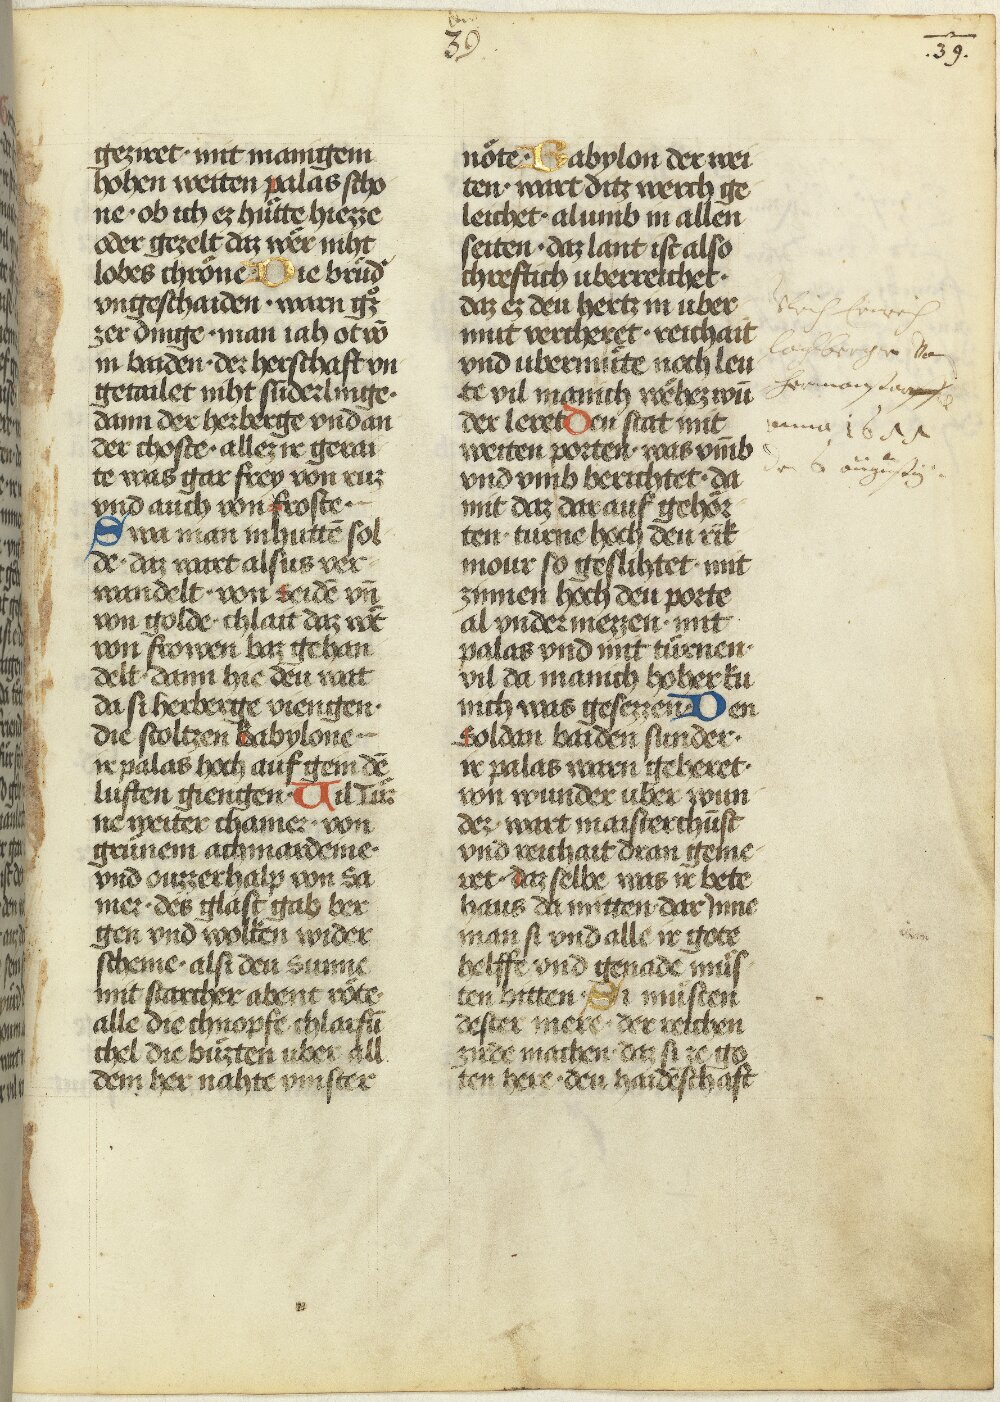 39
.39.
geziret · mit manigem
hohen weiten palas scho
ne · ob ich ez hütte hiezze
oder gezelt daz wer niht
lobes chröne · Die brüd
vngeschaiden · warn gz
zer dinge · man iah ot
in baiden · der herschaft vn
getailet niht süderlinge ·
dann der herberge vnd an
der choste · aller ir gerai
te was gar frey von rur
vnd auch von froste ·
Swa man in hutten sol
de · daz wart alsus ver
wandelt · von seiden vn
von golde · chlait daz
von frowen baz gehan
delt · dann hie den rait
da si herberge viengen ·
die stoltzen babylone
ir palas hoch auf gem de
luften giengen · Uil Tür
ne weiter chamer · von
grünem achmardeine ·
vnd ouzzerhalp von sa
mer · des glast gab ber
gen vnd wolken wider
scheine · alsi deu sunne
mit starcher abent röte
alle die chnopfe chlarfu
chel die buzten uber all
dem her nahte vinster
nöte · Babylon der wei
ten · wart ditz werch ge
leichet · alumb in allen
seiten · daz lant ist also
chreftich uberreichet ·
daz ez den hertz in uber
mut vercheret · reichait
vnd ubermüte noch leu
te vil manich
der leret Den stat mit
weiten porten · was vmb
vnd vmb berichtet · da
mit daz dar auf gehör
ten · turne hoch den rik
mour so geslihtet · mit
zinnen hoch deu porte
al vndermezzen · mit
palas vnd mit türnen ·
vil da manich hoher ku
nich was gesezzen · Den
soldan baiden sunder ·
ir palas warn geheret ·
von wunder uber wun
der · wart maisterchust
vnd reichait dran geme
ret · daz selbe was ir bete
haus da mitten dar Inne
man si vnd alle ir gote
helffe vnd genade müs
ten bitten · Si musten
dester mere · der reichen
zirde machen · daz si ze go
ten here · den haidēschaft
anno 1655